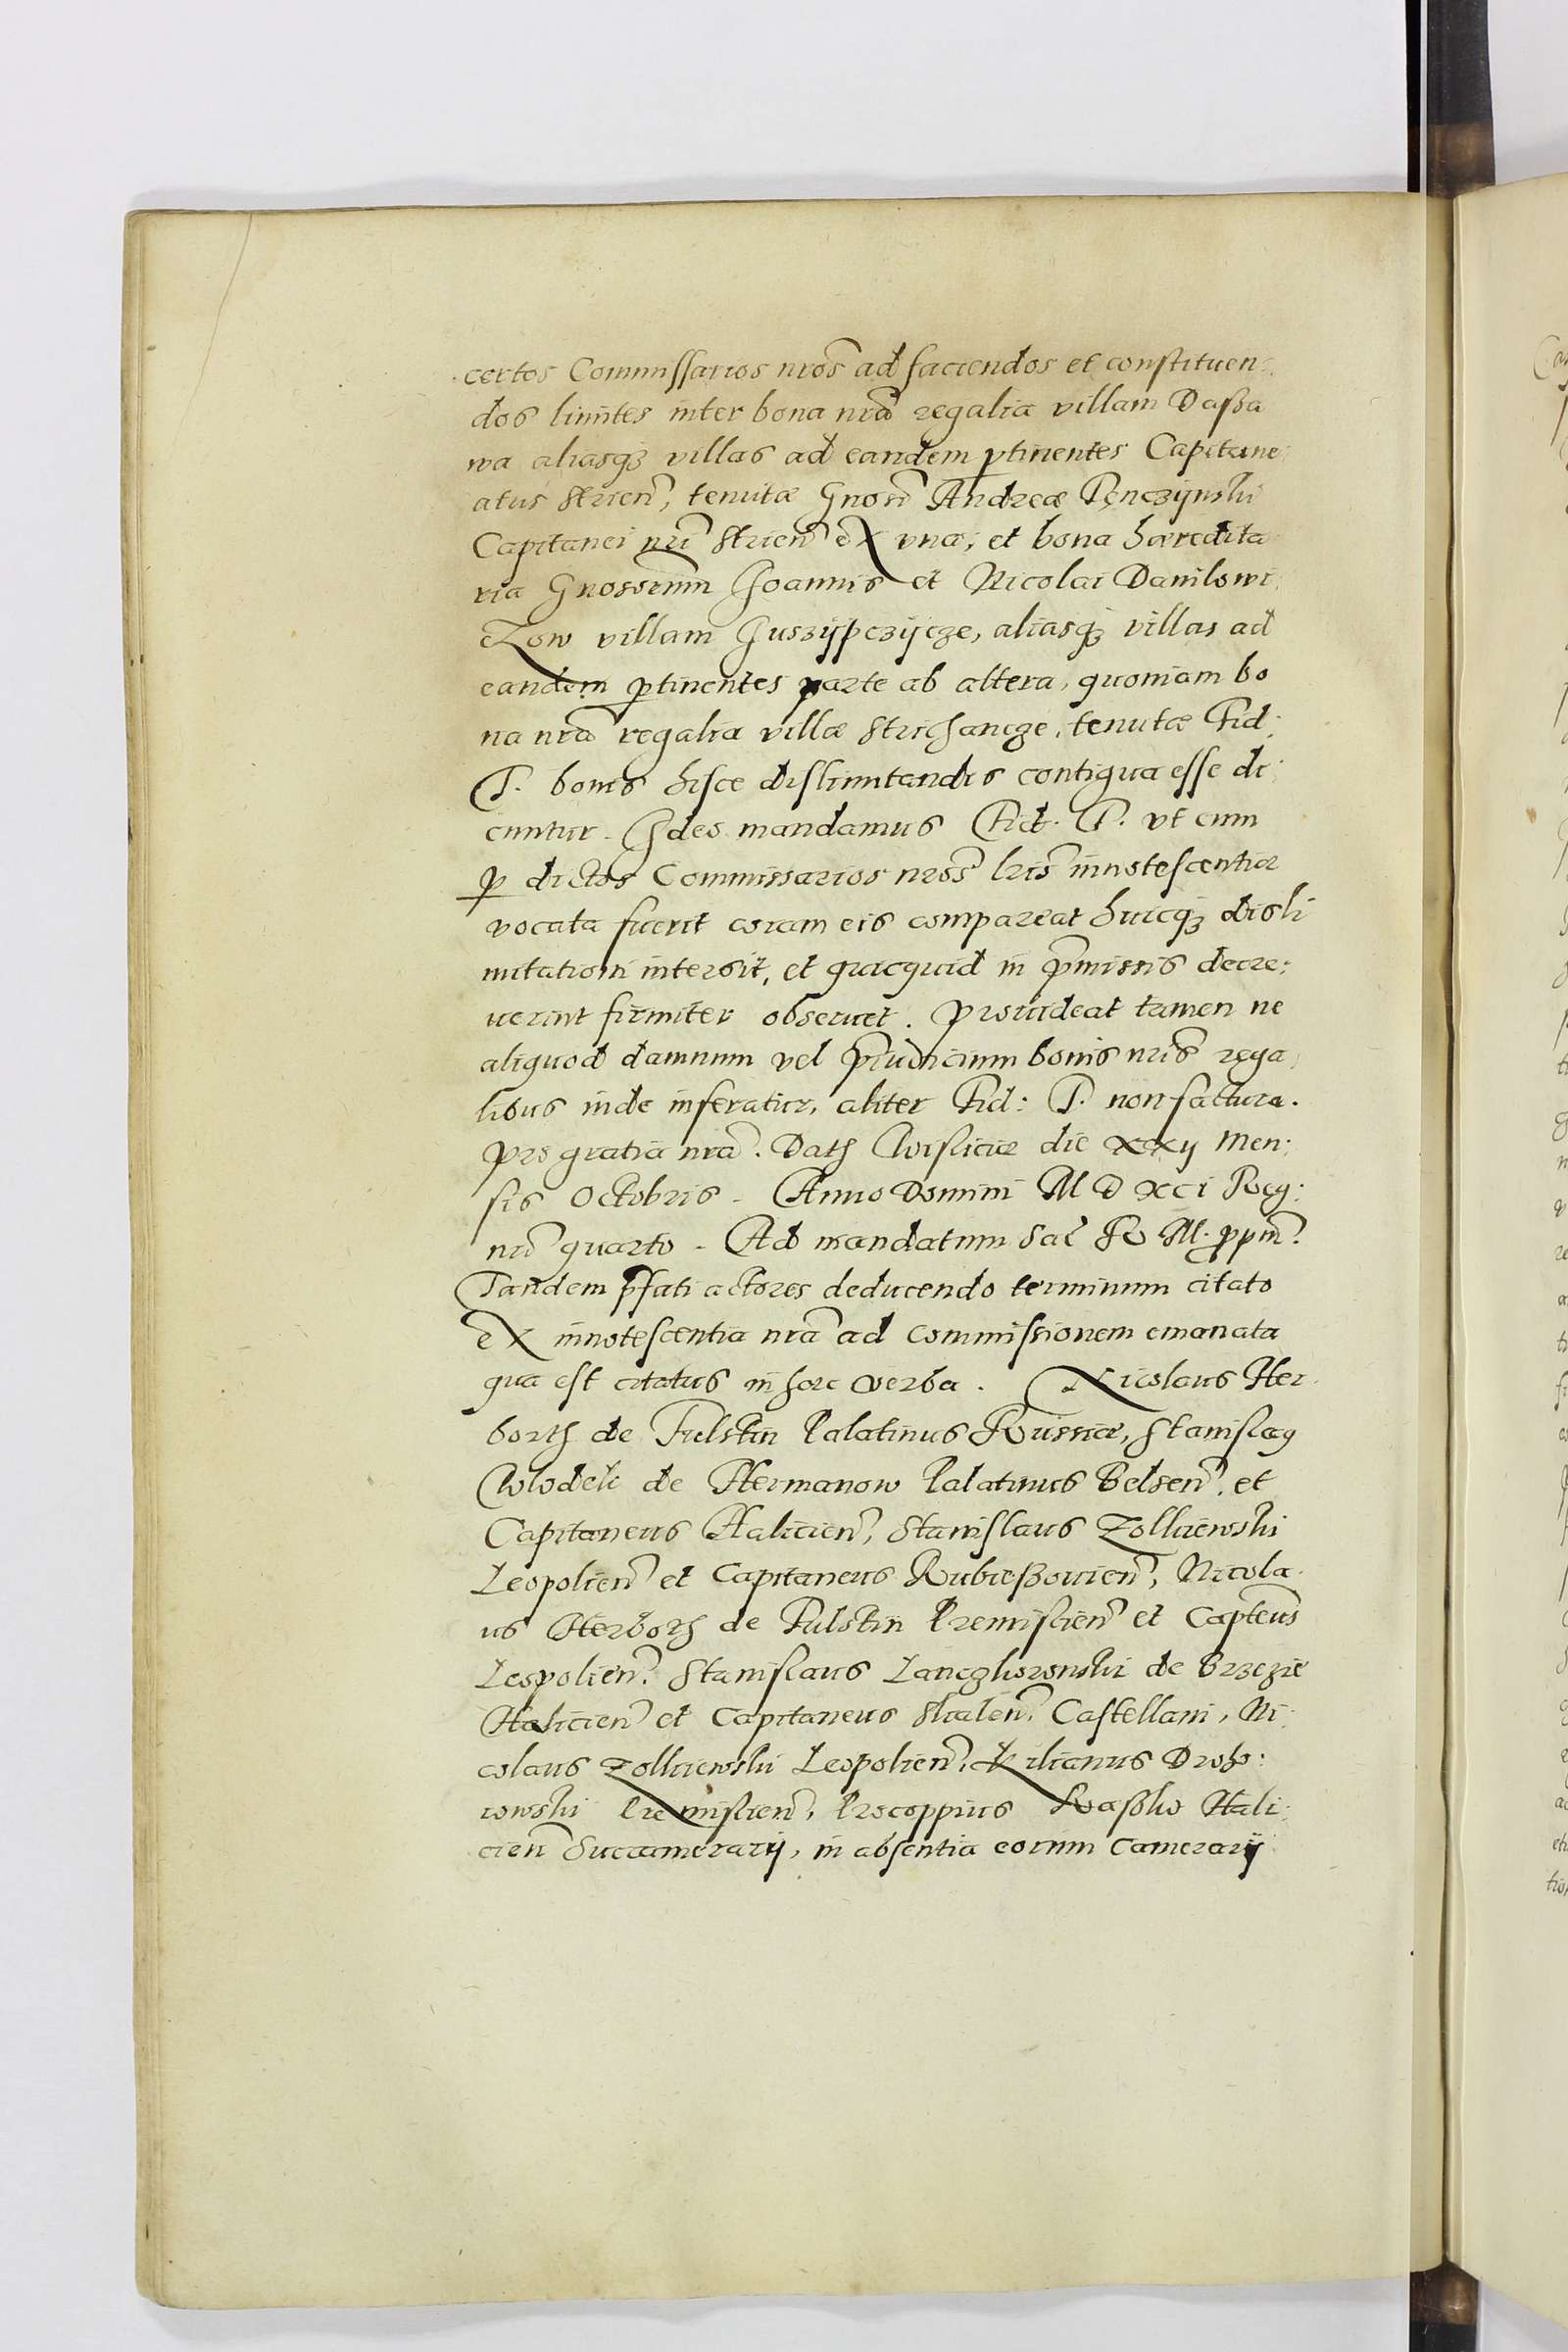 certos Commissarios nros ad faciendos et constituen:
dos limites inter bona nra regalia villam Daßa
wa aliasqȝ villas ad eandem ptinentes Capitane:
atus Strien, tenutæ Gnosi Andreæ Pęnczÿnski
Capitanei nri Strien ex vna, et bona hæredita
ria Gnosorum Joannis et Nicolai Danilowi:
czow villam Juszÿpczÿcze, aliasqȝ villas ad
eandem ptinentes parte ab altera, quoniam bo
na nra regalia villæ Strichancze, tenutæ Fid:
T. bonis hisce dislimitandis contigua esse di:
cuntur. Ideo mandamus Fid. T. vt cum
p dictos Commissarios nros lris innotescentiæ
vocata fuerit coram eis compareat huicqȝ disli
mitationi intersit, et quicquid in pmissis decre:
uerint firmiter obseruet. Prouideat tamen ne
aliquod damnum vel priudicium bonis nris rega,
libus inde inferatur, aliter Fid: T. non factura.
pro gratia nra. Dath Wislicie die xxij Men:
sis Octobris. Anno Domini M D XCI Reg:
nri quarto. Ad mandatum Sac R M. ppm.
Tandem pfati actores deducendo terminum citato
ex innotescentia nra ad commissionem emanata
qua est citatus in hæc verba. Nicolaus Her:
borth de Fulstin Palatinus Russiæ, Stanislaꝯ
Wlodek de Hermanow Palatinus Belsen. et
Capitaneus Halicien, Stanislaus Zolkiewski
Leopolien et Capitaneus Rubießouien, Nicola:
us Herborth de Fulstin Premislien et Capteus
Leopolien. Stanislaus Lanczkoronski de Brzezie
Halicien et Capitaneus Skalen. Castellani, Ni:
colaus Zolkiewski Leopolien, Kilianus Droho:
iowski Premislien, Procoppius Raßko Hali:
cien Succamerarij, in absentia eorum Camerarij